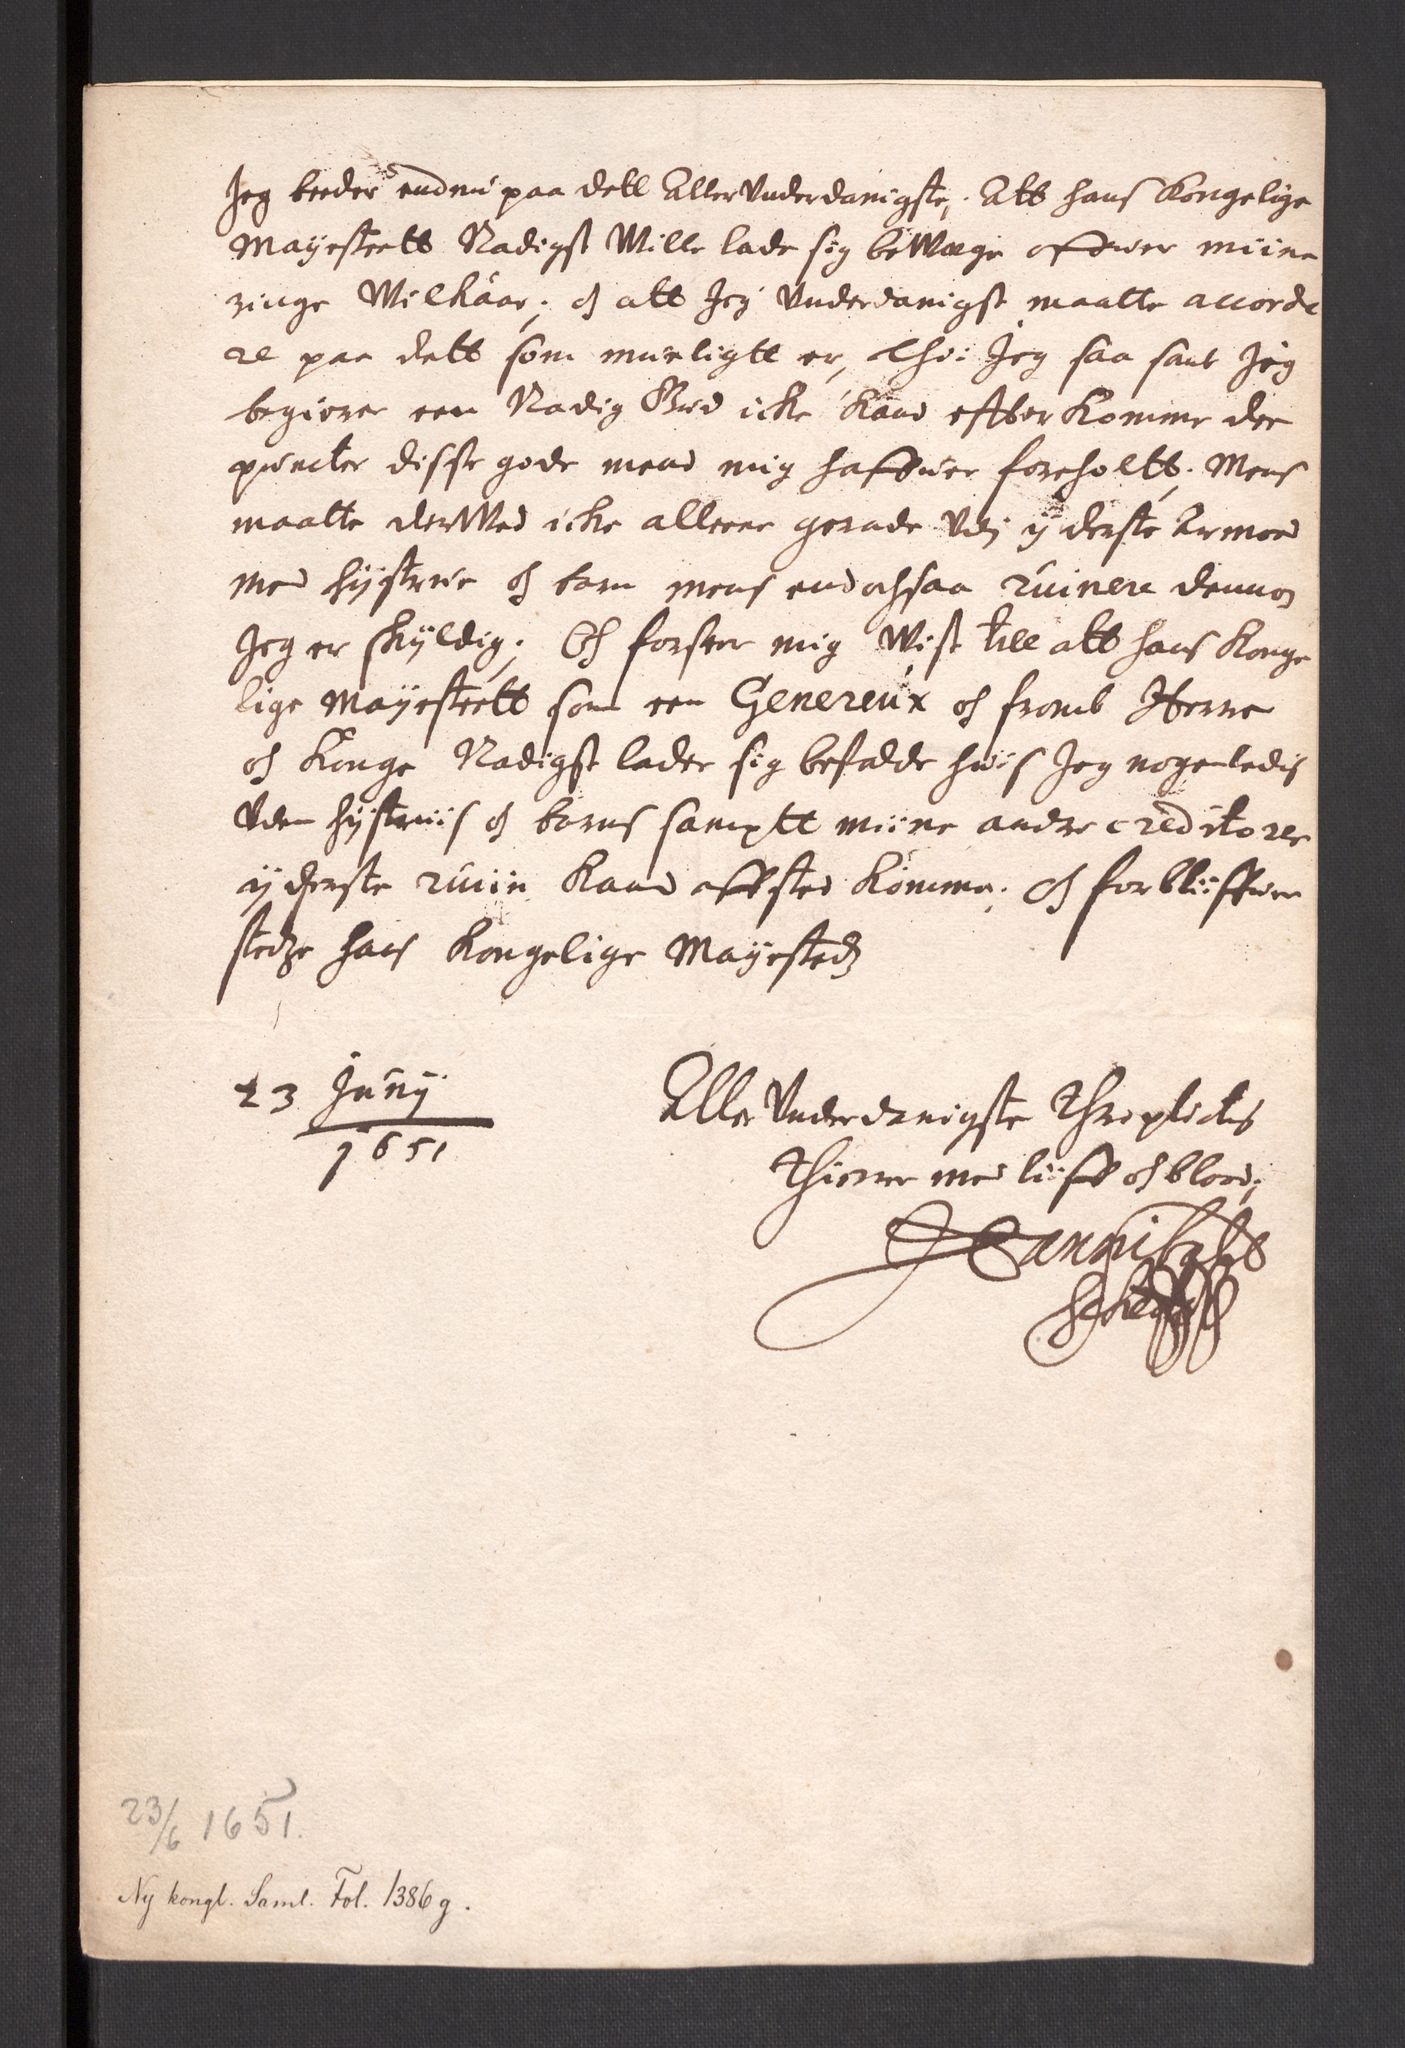 Jeg beeder endnu paa dett Aller Underdanigste, Att hans Kongelige
Mayestett Nadigst Wille lade sig beWæge offuer miine
ringe Wilkaar, och att Jeg Underdanigst maatte accorde
re paa dett som mueligtt er, Thi Jeg saa sant Jeg
begierer een Nadig Gud icke Kand efterkomme dee
puncter disse gode mend mig haffuer foreholtt, Mens
maatte derWed icke alleene gerade Udj yderste Armod
med hystrue och børn mens endochsaa ruinere dennom
Jeg er skyldig, Och forseer mig Wist till att hans Konge
lige Mayestett som een Genereux och from Herre
och Konge Nadigst lader sig befalde huis Jeg nogenledis
Uden hystruis och børns samptt miine andre creditorer
yderste ruiin Kand affsted Komme, och forbliffuer
stedze hans Kongelige Mayestedz
23 Juny
1651
Aller Underdanigste Throplictig
Thienner med liiff och blood,
Hannibahl
Sehested
23/6 1651.
Ny kongl. Saml. Fol. 1386 g.